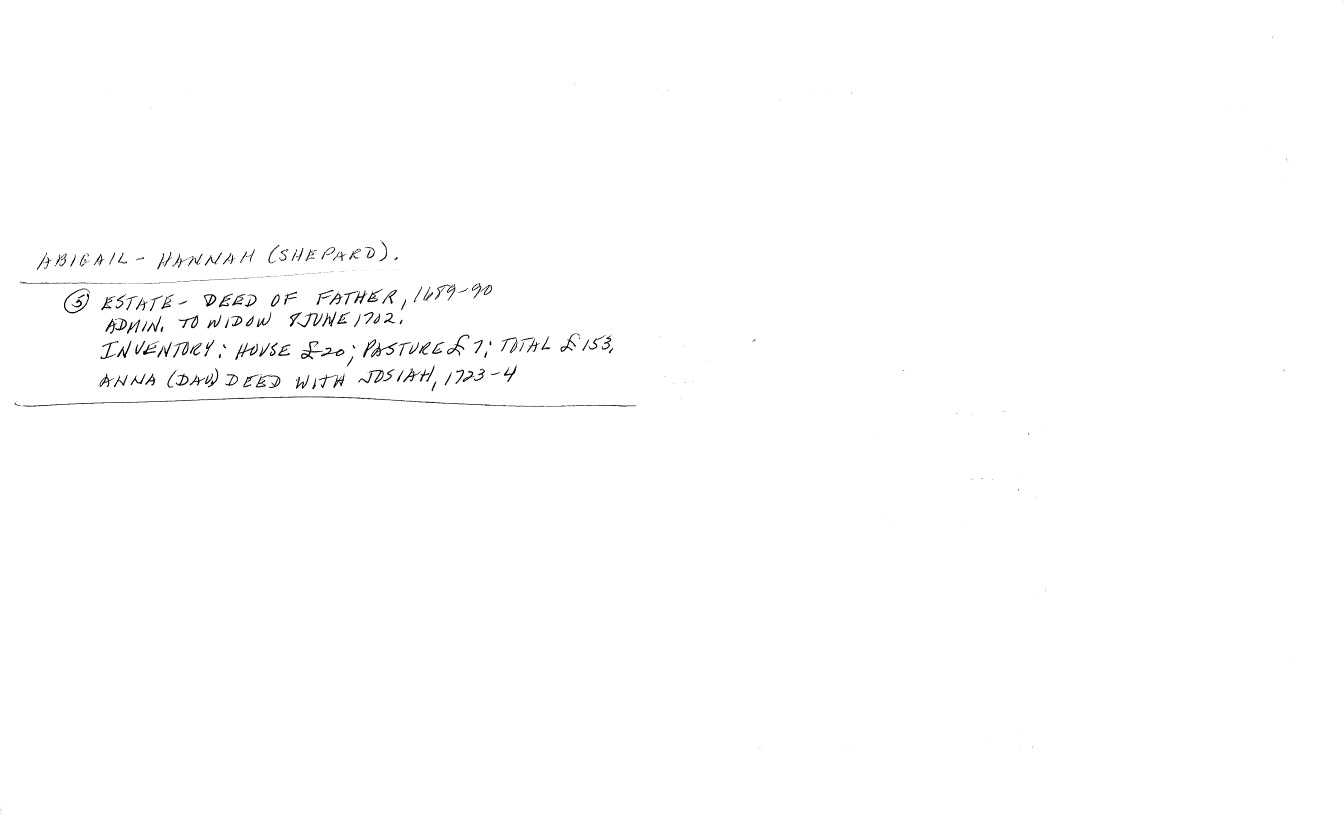 ABIGAIL - HANNAH (SHEPARD).
⑤ ESTATE - DEED OF FATHER, 1689-90
ADMIN. TO WIDOW 8 JUNE 1702.
INVENTORY: HOUSE £20; PASTURE £7; TOTAL £153.
ANNA (DAU) DEED WITH JOSIAH, 1723-4